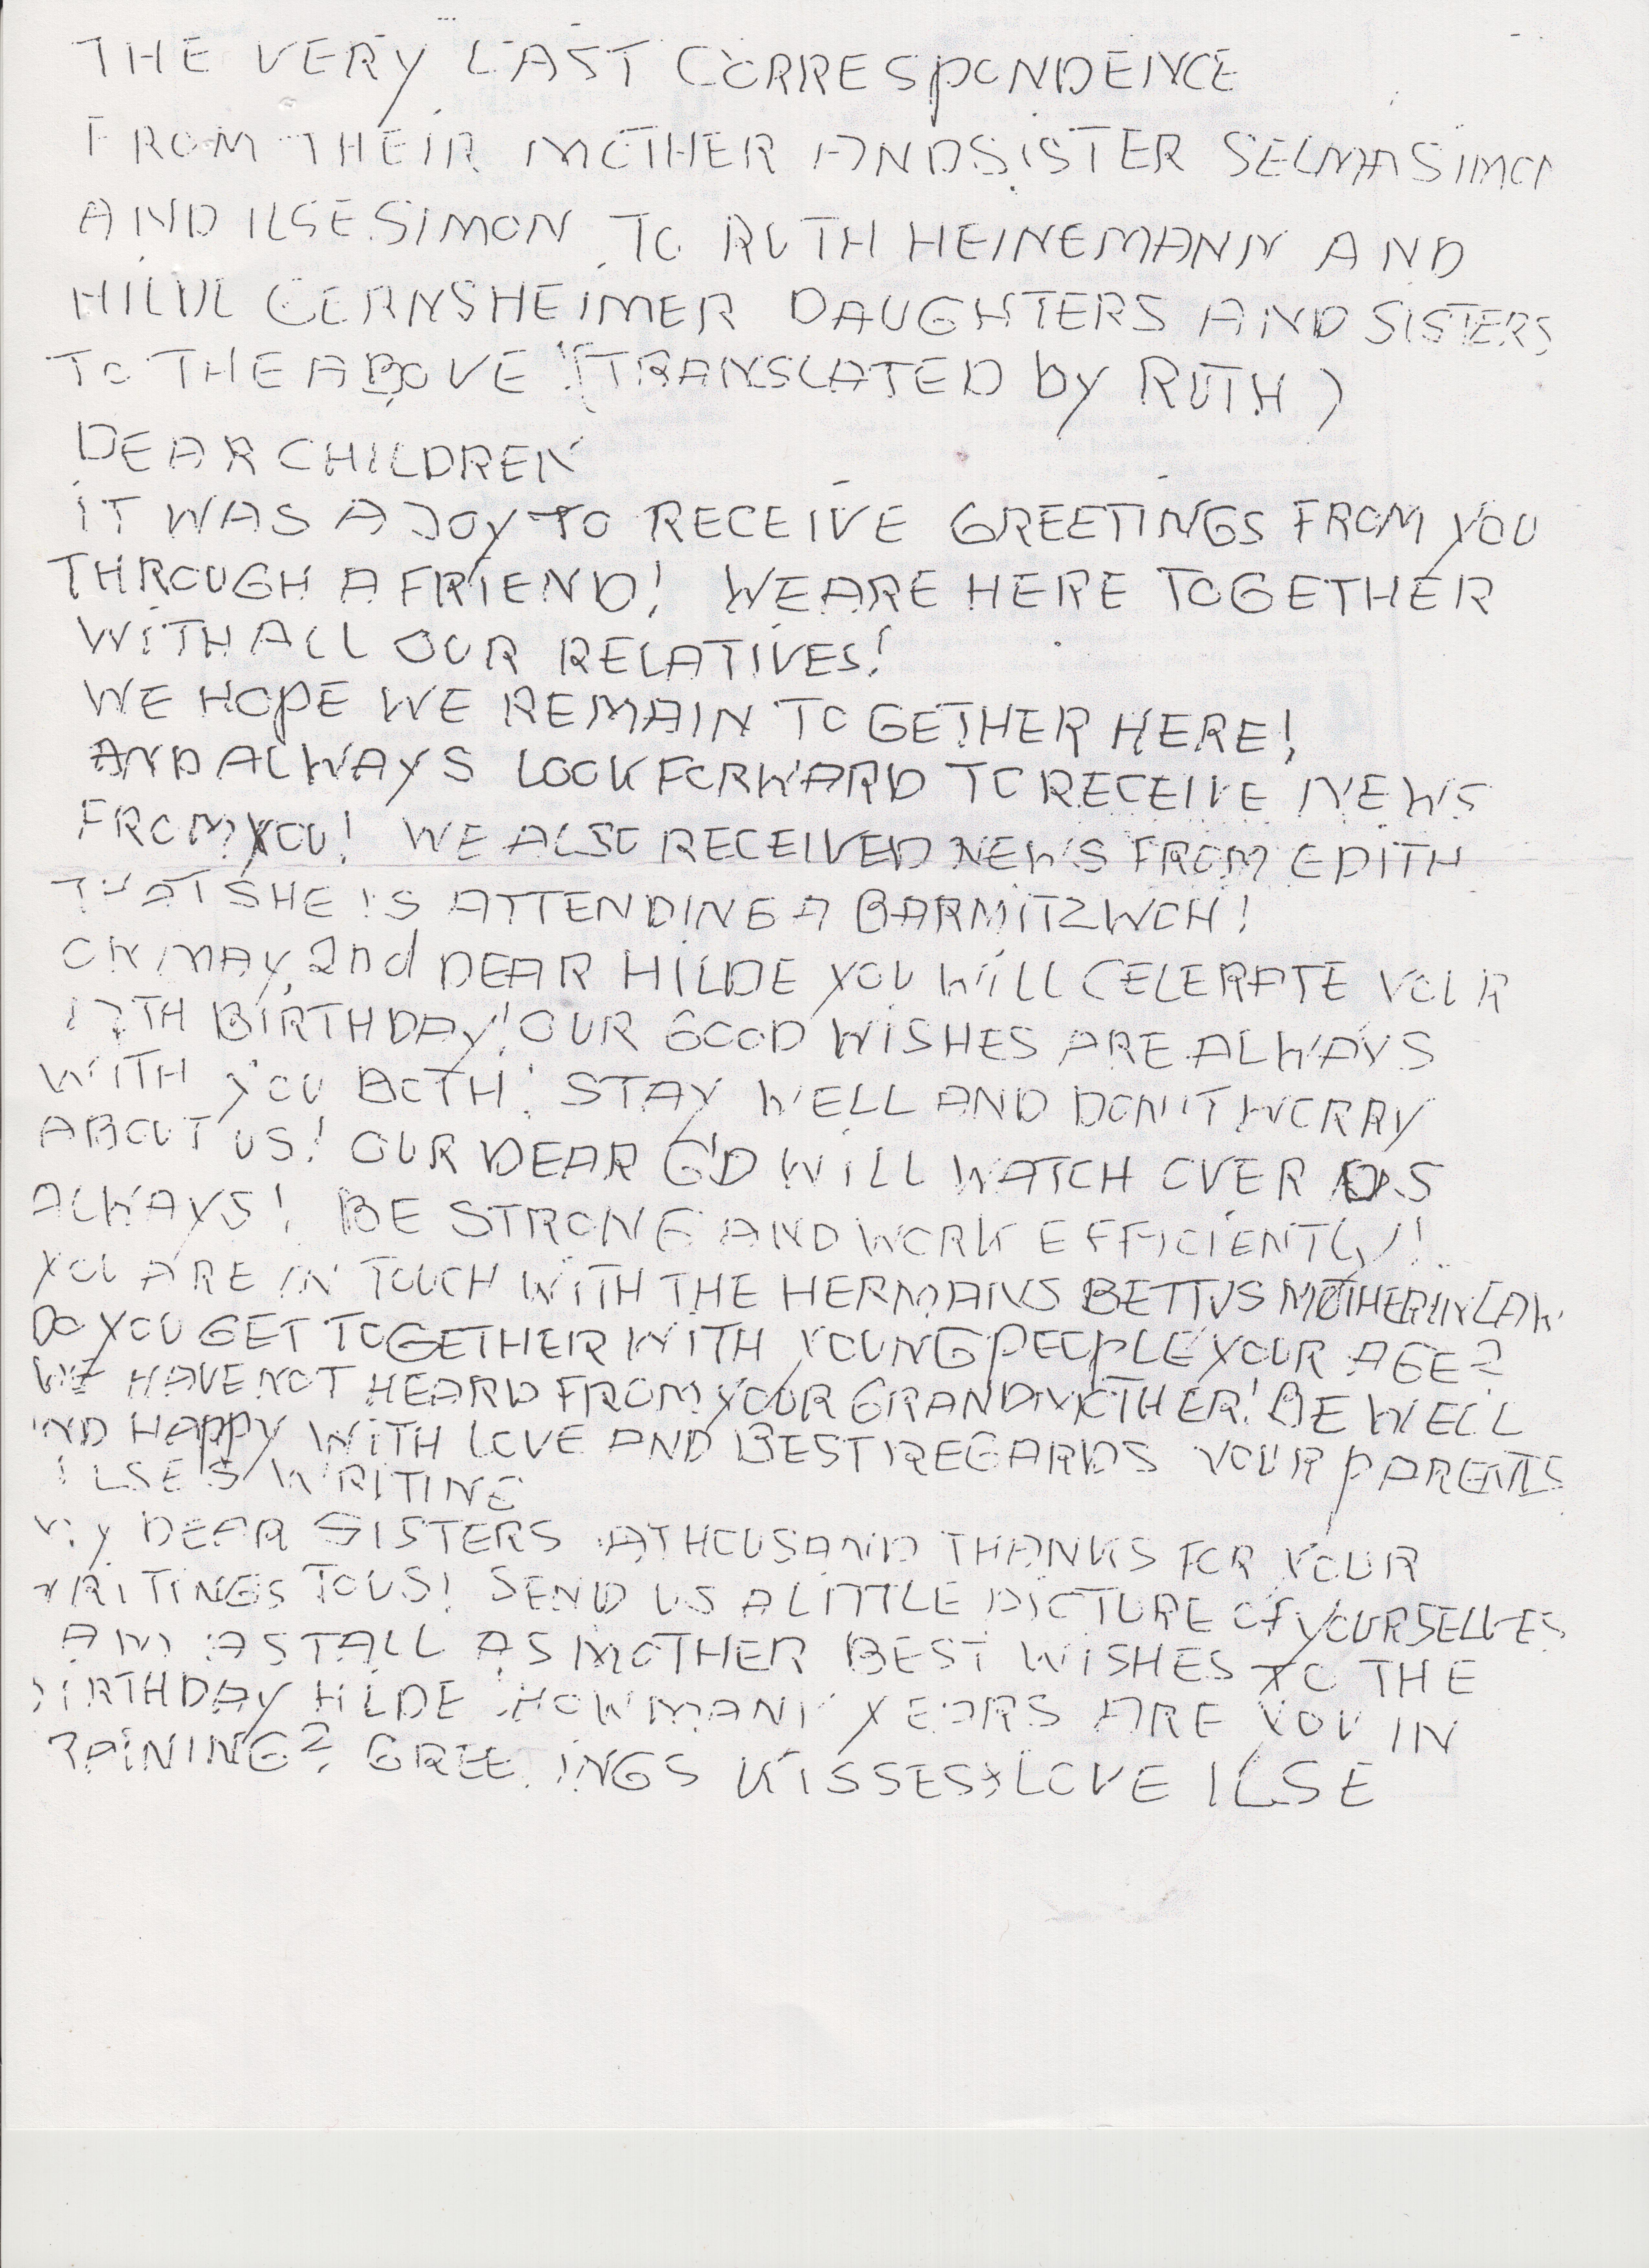 THE VERY LAST CORRESPONDENCE
FROM THEIR MOTHER AND SISTER SELMA SIMON
AND ILSE SIMON TO RUTH HEINEMANN AND
HILDE GERNSHEIMER DAUGHTERS AND SISTERS
TO THE ABOVE! (TRANSLATED by RUTH)
DEAR CHILDREN
IT WAS A JOY TO RECEIVE GREETINGS FROM YOU
THROUGH A FRIEND! WE ARE HERE TOGETHER
WITH ALL OUR RELATIVES!
WE HOPE WE REMAIN TOGETHER HERE!
AND ALWAYS LOOK FORWARD TO RECEIVE NEWS
FROM YOU! WE ALSO RECEIVED NEWS FROM EDITH
THAT SHE IS ATTENDING A BARMITZWOH!
ON MAY 2nd DEAR HILDE YOU WILL CELERATE YOUR
17TH BIRTHDAY! OUR GOOD WISHES ARE ALWAYS
WITH YOU BOTH! STAY WELL AND DON'T WORRY
ABOUT US! OUR DEAR G'D WILL WATCH OVER US
ALWAYS! BE STRONG AND WORK EFFICIENTLY!
YOU ARE IN TOUCH WITH THE HERMANS BETTYS MOTHER IN LAW
DO YOU GET TOGETHER WITH YOUNG PEOPLE YOUR AGE?
WE HAVE NOT HEARD FROM YOUR GRANDMOTHER! BE WELL
AND HAPPY WITH LOVE AND BEST REGARDS YOUR PARENTS
ILSE'S WRITING
MY DEAR SISTERS A THOUSAND THANKS FOR YOUR
WRITINGS TO US! SEND US A LITTLE PICTURE OF YOURSELVES
AM AS TALL AS MOTHER BEST WISHES TO THE
BIRTHDAY HILDE HOW MANY YEARS ARE YOU IN
TRAINING? GREETINGS KISSES & LOVE ILSE